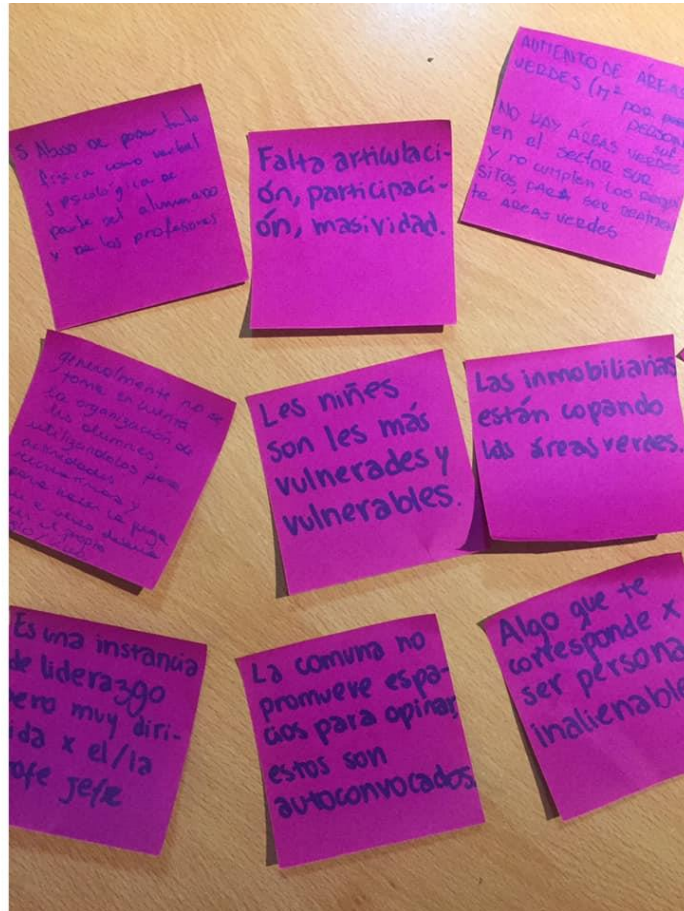 s Abuso de poder tanto
física como verbal
y psicológica de
parte del alumnado
y de los profesores
Falta articulaci-
ón, participaci-
ón, masividad.
AUMENTO DE ÁREAS
VERDES (M² por
PERSONA
NO HAY ÁREAS VERDES
en el sector sur
Y no cumplen los requi
sitos PARA ser realmen
te AREAS VERDES
generalmente no se
toma en cuenta
la organización de
los alumnos
utilizándolos para
actividades
y
para hacer la pega
Les niñes
son les más
vulnerades y
vulnerables.
Las inmobiliarias
están copando
las áreas verdes.
Es una instancia
de liderazgo
pero muy diri-
ida x el/la
ofe jefe
La comuna no
promueve espa-
cios para opinar,
estos son
autoconvocados.
Algo que te
corresponde x
ser persona
inalienable